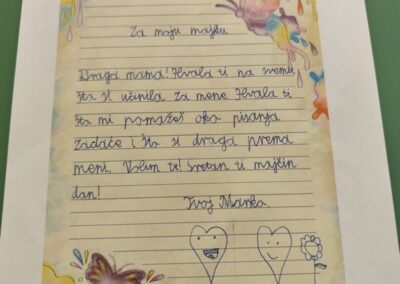 Za moju majku
Draga mama! Hvala ti na svemu
što si učinila za mene. Hvala ti
što mi pomažeš oko pisanja
zadaće i što si draga prema
meni. Volim te! Sretan ti majčin
dan!
Tvoj Marko.